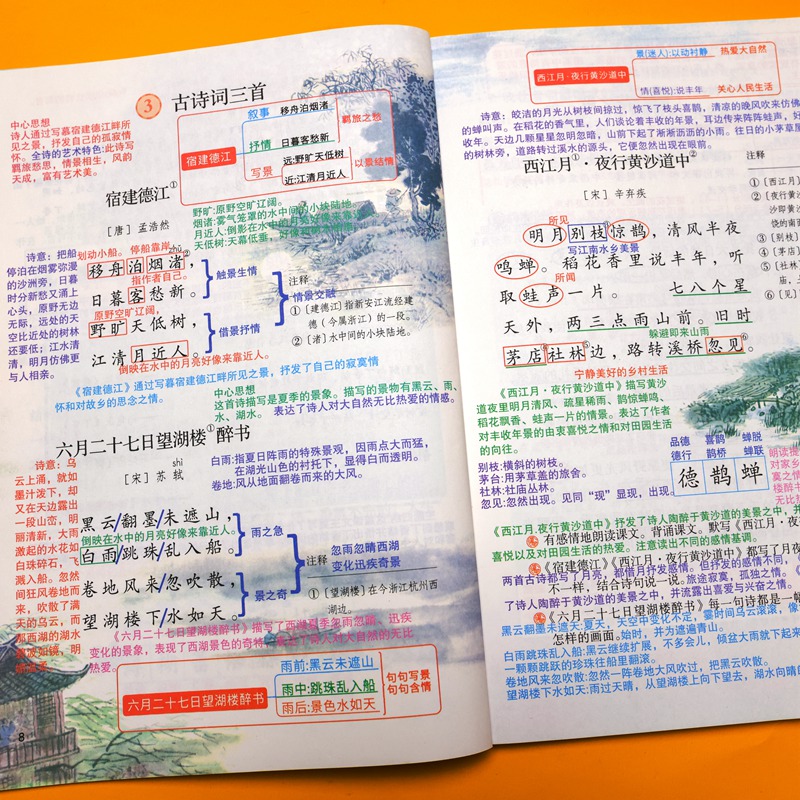 3
古诗词三首
中心思想
诗人通过写暮宿建德江畔所
见之景,抒发自己的孤寂情
怀。全诗的艺术特色:此诗写
羁旅愁思,情景相生,风韵
天成,富有艺术美。
宿建德江
叙事
移舟泊烟渚
抒情
日暮客愁新
羁旅之愁
写景
远:野旷天低树
近:江清月近人
以景结情
宿建德江①
[唐] 孟浩然
野旷:原野空旷辽阔。
烟渚:雾气笼罩的水中间的小块陆地。
诗意:把船
停泊在烟雾弥漫
的沙洲旁,日暮
时分新愁又涌上
心头,原野无边
无际,远处的天
空比近处的树林
还要低;江水清
清,明月仿佛更
与人相亲。
划动小船。
停船靠岸。
zhǔ
移舟泊烟渚②,
指作者自己。
日暮客愁新。
触景生情
原野空旷辽阔,
野旷天低树,
江清月近人。
借景抒情
情景交融
倒映在水中的月亮好像来靠近人。
注释
①〔建德江〕指新安江流经建
德(今属浙江)的一段。
②〔渚〕水中间的小块陆地。
《宿建德江》通过写暮宿建德江畔所见之景,抒发了自己的寂寞情
怀和对故乡的思念之情。
中心思想
这首诗描写是夏季的景象。描写的景物有黑云、雨、
水、湖水。表达了诗人对大自然无比热爱的情感。
六月二十七日望湖楼①醉书
[宋] 苏轼
shì
白雨:指夏日阵雨的特殊景观,因雨点大而猛,
在湖光山色的衬托下,显得白而透明。
卷地:风从地面翻卷而来的大风。
诗意:乌
云上涌,就如
墨汁泼下,却
又在天边露出
一段山峦,明
丽清新,大雨
激起的水花如
白珠碎石,飞
溅入船。忽然
间狂风卷地而
来,吹散了满
天的乌云,而
那西湖的湖水
黑云/翻墨/未遮山,
倒映在水中的月亮好像来靠近人。
白雨/跳珠/乱入船。
雨之急
卷地风来/忽吹散,
望湖楼下/水如天。
景之奇
注释
忽雨忽晴西湖
变化迅疾奇景
①〔望湖楼〕在今浙江杭州西
湖边。
《六月二十七日望湖楼醉书》描写了西湖夏季忽雨忽晴、迅疾
变化的景象,表现了西湖景色的奇特,表达了诗人对大自然的无比
热爱。
六月二十七日望湖楼醉书
雨前:黑云未遮山
雨中:跳珠乱入船
雨后:景色水如天
句句写景
句句含情
8
西江月·夜行黄沙道中
景(迷人):以动衬静
热爱大自然
情(喜悦):说丰年
关心人民生活
诗意:皎洁的月光从树枝间掠过,惊飞了枝头喜鹊,清凉的晚风吹来仿佛
的蝉叫声。在稻花的香气里,人们谈论着丰收的年景,耳边传来阵阵蛙声,好
收年。天边几颗星星忽明忽暗,山前下起了淅淅沥沥的小雨。往日的小茅草屋
的树林旁,道路转过溪水的源头,它便忽然出现在眼前。
西江月①·夜行黄沙道中②
[宋] 辛弃疾
注释
①〔西江月〕
②〔夜行黄
沙即黄沙
饶的南面
③〔别枝〕
④〔茅店〕
⑤〔社林〕
⑥〔见〕
所见
明月别枝③惊鹊,清风半夜
写江南水乡美景
鸣蝉。稻花香里说丰年,听
所闻
取蛙声一片。 七八个星
天外,两三点雨山前。旧时
躲避即来山雨
茅店④社林⑤边,路转溪桥忽见⑥。
宁静美好的乡村生活
《西江月·夜行黄沙道中》描写黄沙
道夜里明月清风、疏星稀雨、鹊惊蝉鸣、
稻花飘香、蛙声一片的情景。表达了作者
对丰收年景的由衷喜悦之情和对田园生活
的向往。
别枝:横斜的树枝。
茅台:用茅草盖的旅舍。
社林:社庙丛林。
忽见:忽然出现。见同“现”显现,出现。
品德 喜鹊 蝉脱
德行 鹊桥 蝉联
德 鹊 蝉
《西江月.夜行黄沙道中》抒发了诗人陶醉于黄沙道的美景之中,并
有感情地朗读课文。背诵课文。默写《西江月·夜
喜悦以及对田园生活的热爱。注意读出不同的感情基调。
《宿建德江》《西江月·夜行黄沙道中》都写了月夜
两首古诗都写了月亮,都借月抒发感情。但抒发的感情不同,
不一样,结合诗句说一说。旅途寂寞,孤独之情。
了诗人陶醉于黄沙道的美景之中、并流露出喜爱与兴奋之情。
《六月二十七日望湖楼醉书》每一句诗都是一幅
黑云翻墨未遮天:夏天,天空中变化不定,霎时间乌云滚滚,像
怎样的画面。始时,并为遮避青山。
白雨跳珠乱入船:黑云继续扩展,不多会儿,倾盆大雨就下起来
一颗颗跳跃的珍珠往船里翻滚。
卷地风来忽吹散:忽然一阵卷地大风吹过,把黑云吹散。
望湖楼下水如天:雨过天晴,从望湖楼上向下望去,湖水向晴